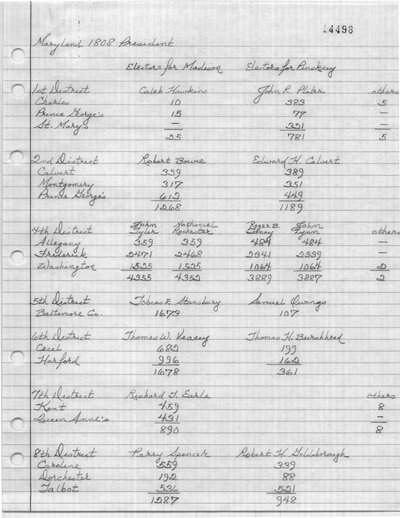 14498
Maryland 1808 President
Electors for Madison Electors for Pinckney
1st District Caleb Hawkins John R. Plater others
Charles 10 383 5
Prince George's 15 77 —
St. Mary's — 321 —
25 781 5
2nd District Robert Bowie Edward H. Calvert
Calvert 339 389
Montgomery 317 351
Prince George's 612 449
1268 1189
4th District John Tyler Nathaniel Rochester Roger B. Taney John Lynn others
Allegany 359 359 484 484 —
Frederick 2471 2468 2341 2339 —
Washington 1525 1525 1064 1064 2
4355 4352 3889 3887 2
5th District Tobias E. Stansbury Samuel Owings
Baltimore Co. 1679 107
6th District Thomas W. Veazey Thomas H. Burckhead
Cecil 682 199
Harford 996 162
1678 361
7th District Richard T. Earle others
Kent 459 8
Queen Anne's 431 —
890 8
8th District Perry Spencer Robert H. Goldsborough
Caroline 559 339
Dorchester 192 88
Talbot 536 521
1287 948